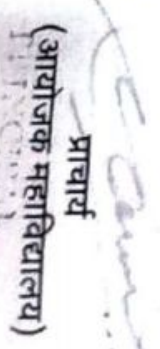 प्राचार्य
(आयोजक महाविद्यालय)